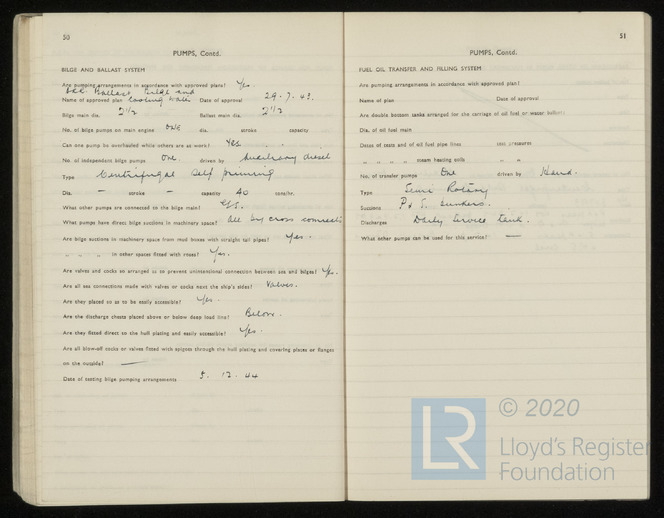 50
PUMPS, Contd.
BILGE AND BALLAST SYSTEM
Are pumping arrangements in accordance with approved plans? Yes.
Ballast Bilge and
Name of approved plan Cooling Water Date of approval 29.7.43.
Bilge main dia. 2½ Ballast main dia. 2½
No. of bilge pumps on main engine ONE dia. stroke capacity
Can one pump be overhauled while others are at work? Yes
No. of independent bilge pumps One driven by Auxiliary diesel
Type Centrifugal Self priming
Dia. – stroke – capacity 40 tons/hr.
What other pumps are connected to the bilge main? G.S.
What pumps have direct bilge suctions in machinery space? All by cross connecti
Are bilge suctions in machinery space from mud boxes with straight tail pipes? Yes.
„ „ „ in other spaces fitted with roses? Yes.
Are valves and cocks so arranged as to prevent unintentional connection between sea and bilges? Yes.
Are all sea connections made with valves or cocks next the ship's sides? Valves.
Are they placed so as to be easily accessible? Yes.
Are the discharge chests placed above or below deep load line? Below.
Are they fitted direct to the hull plating and easily accessible? Yes.
Are all blow-off cocks or valves fitted with spigots through the hull plating and covering plates or flanges
on the outside? —
Date of testing bilge pumping arrangements 5.12.44
51
PUMPS, Contd.
FUEL OIL TRANSFER AND FILLING SYSTEM
Are pumping arrangements in accordance with approved plans?
Name of plan Date of approval
Are double bottom tanks arranged for the carriage of oil fuel or water ballast?
Dia. of oil fuel main
Dates of tests and of oil fuel pipe lines test pressures
„ „ „ „ steam heating coils „ „
No. of transfer pumps One driven by Hand.
Type Semi Rotary
Suctions P & S. bunkers.
Discharges Daily Service tank.
What other pumps can be used for this service? —
LR
© 2020
Lloyd's Register
Foundation